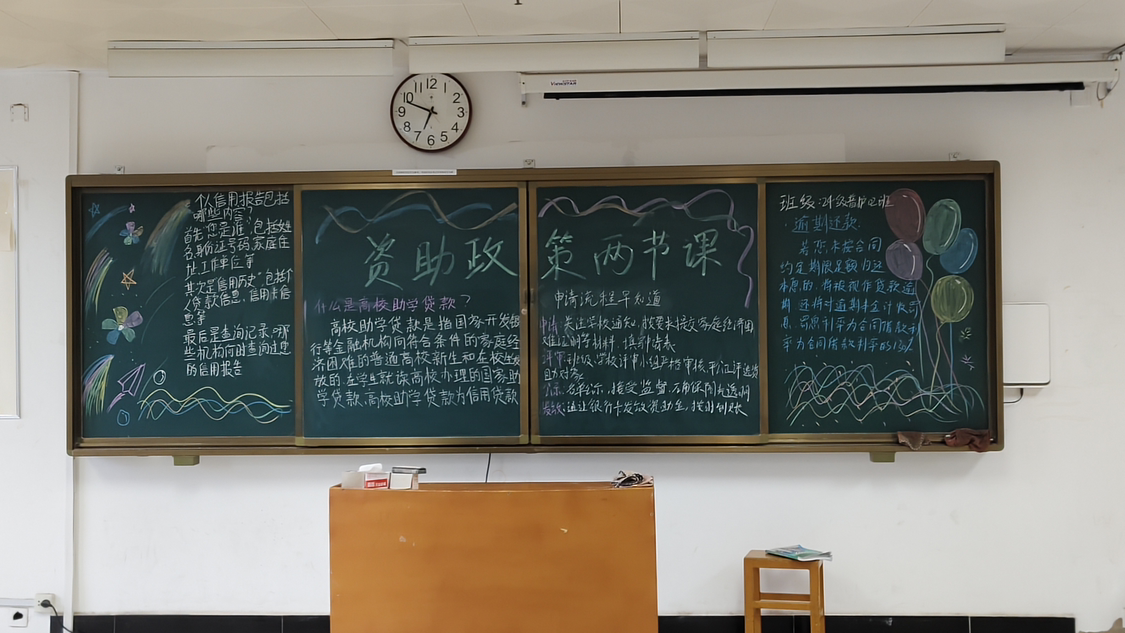 个人信用报告包括
哪些内容?
首先"您是谁"包括姓
名身份证号码家庭住
址,工作单位等
其次是"信用历史"包括个
人贷款信息,信用卡信
息等
最后是查询记录"哪
些机构何时查询过您
的信用报告
资助政策两节课
什么是高校助学贷款?
高校助学贷款是指国家开发银
行等金融机构向符合条件的家庭经
济困难的普通高校新生和在校生发
放的在学生就读高校办理的国家助
学贷款,高校助学贷款为信用贷款
申请流程早知道
申请:关注学校通知,按要求提交家庭经济困
难认定等材料,填
评审:班级、学校评审小组严格审核,公正评选资
助对象
公示:名单公示,接受监督,确保公开透明
发放:通过银行卡发放资助金,按时到账
班级:24级
逾期还款
若您未按合同
约定期限足额归还
本息的,将被视作贷款逾
期,还将对逾期本金计收罚
息,罚息利率为合同借款利
率为合同借款利率的130%
12
1
2
3
4
5
6
7
8
9
10
11
ViewSPAN